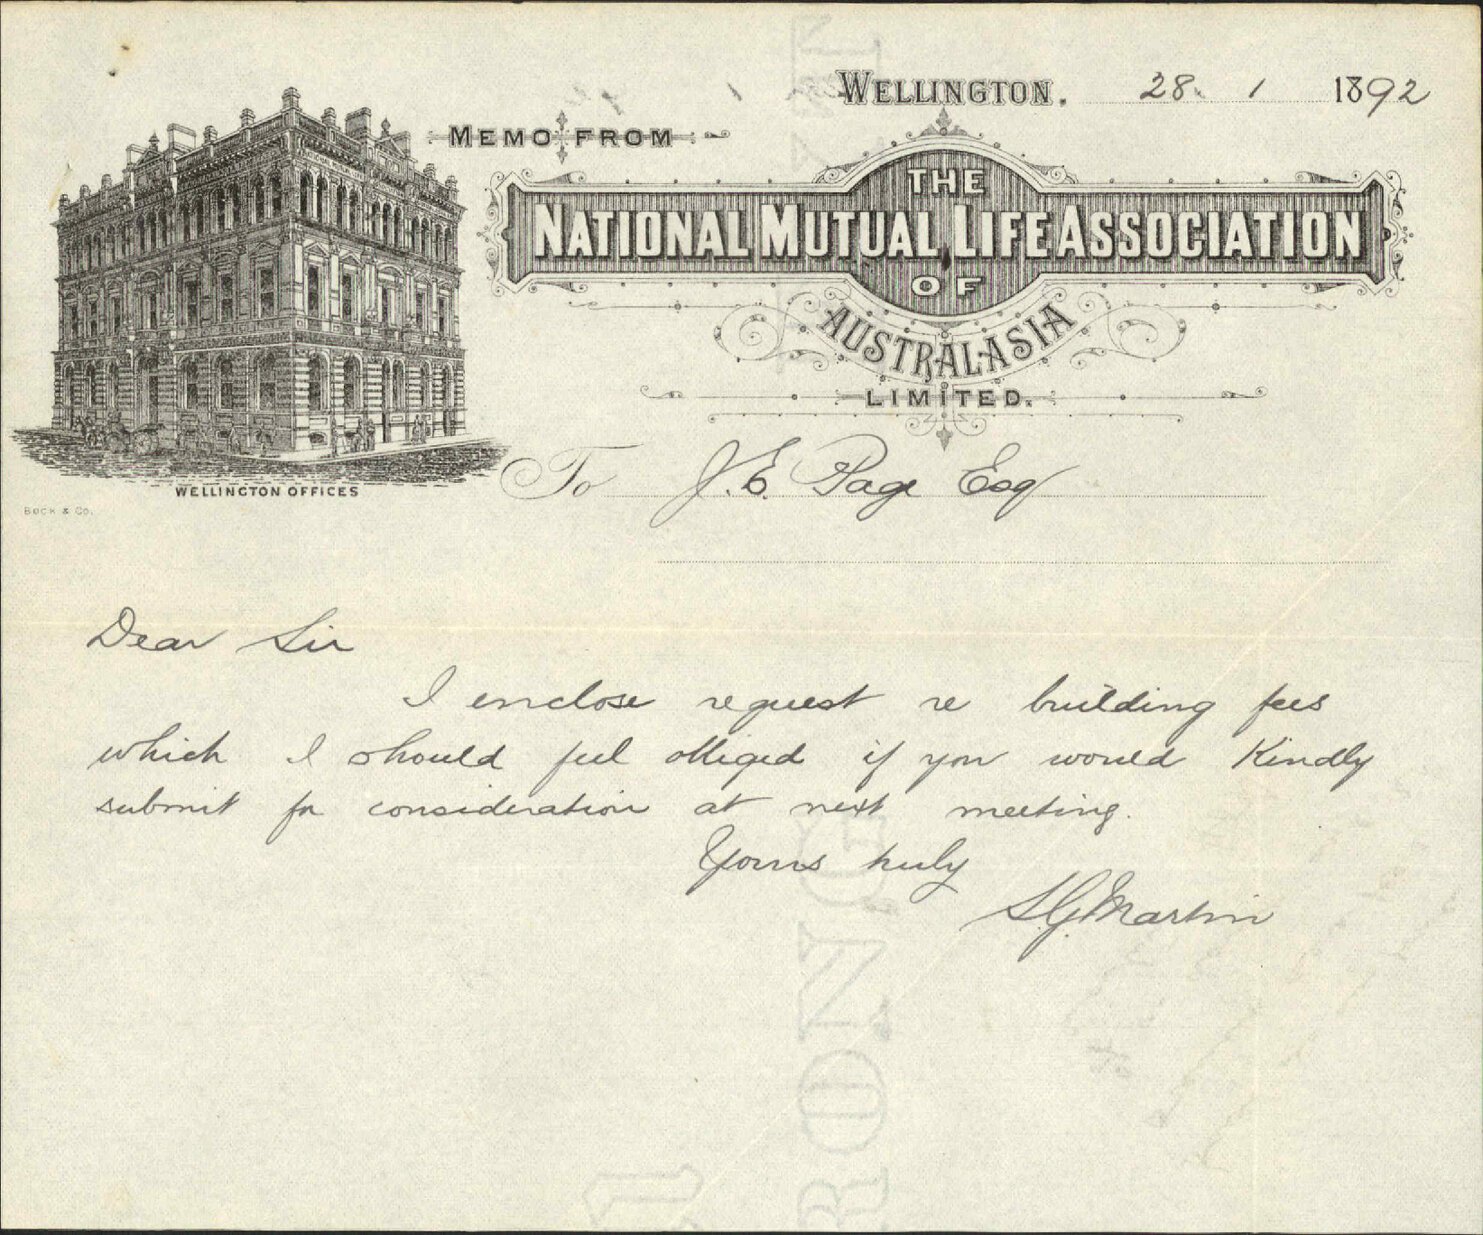 WELLINGTON. 28. 1 1892
MEMO FROM
THE
NATIONAL MUTUAL LIFE ASSOCIATION
OF
AUSTRALASIA
LIMITED.
WELLINGTON OFFICES
BOCK & Co.
To J. E. Page Esq
Dear Sir
I enclose request re building fees
which I should feel obliged if you would Kindly
submit for consideration at next meeting.
Yours truly
S.G. Martin